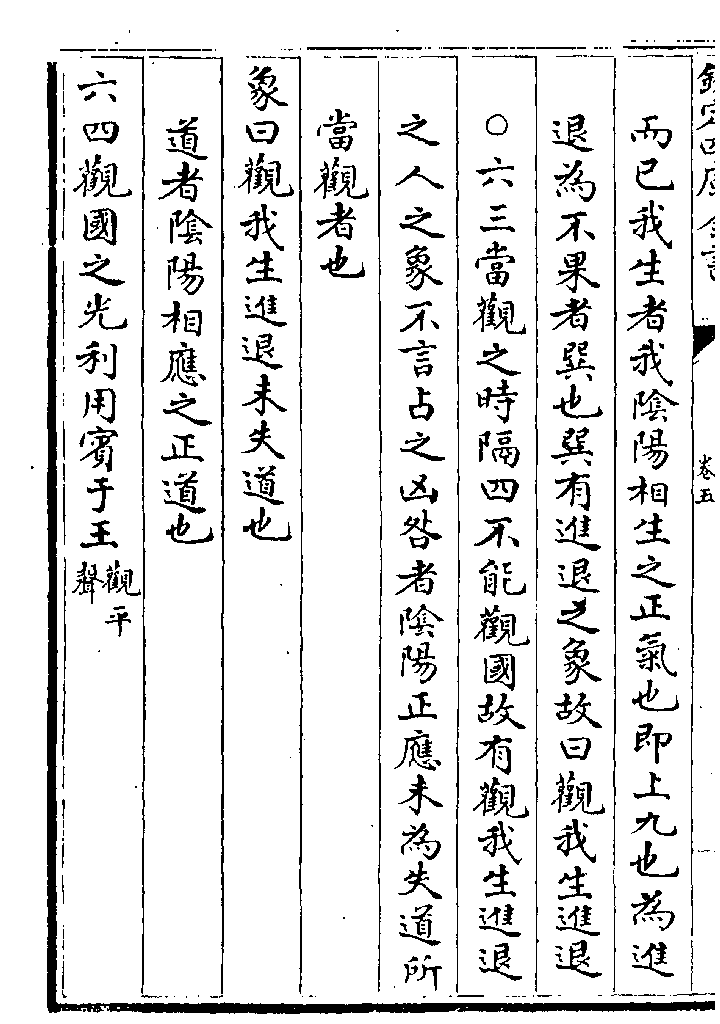 欽定四庫全書
卷五
而已我生者我陰陽相生之正氣也即上九也為進
退為不果者巽也巽有進退之象故曰觀我生進退
○六三當觀之時隔四不能觀國故有觀我生進退
之人之象不言占之凶咎者陰陽正應未為失道所
當觀者也
象曰觀我生進退未失道也
道者陰陽相應之正道也
六四觀國之光利用賓于王觀平聲